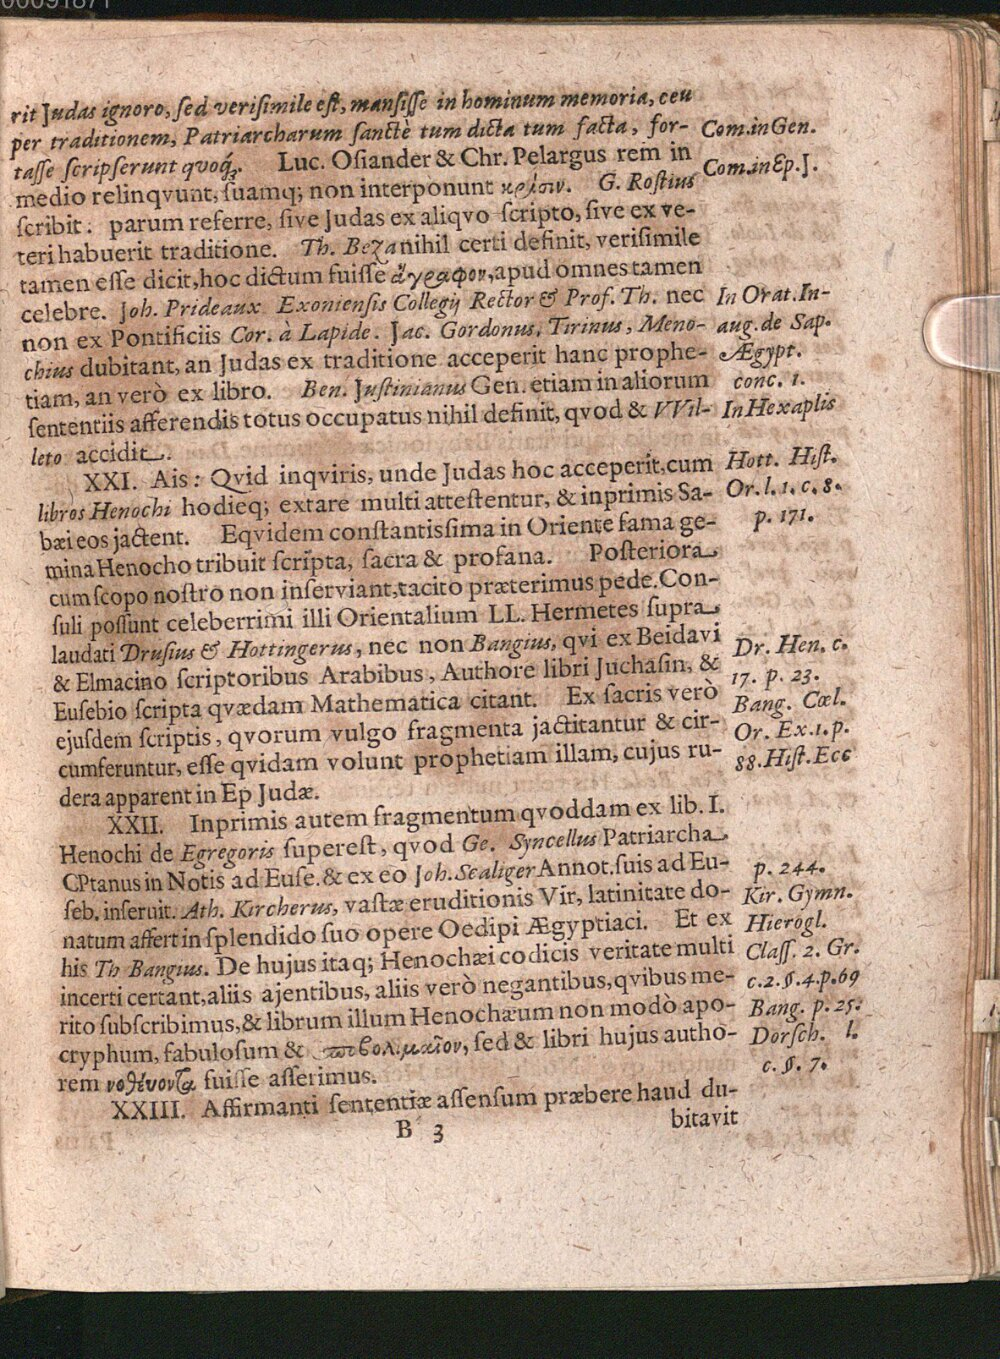 00091871
rit Judas ignoro, ſed veriſimile eſt, manſiſſe in hominum memoria, ceu
per traditionem, Patriarcharum ſanctè tum dicta tum facta, for-
taſſe ſcripſerunt quoq́;. Luc. Oſiander & Chr. Pelargus rem in
medio relinqvunt, ſuamq; non interponunt κρίσιν. G. Roſtius
ſcribit: parum referre, ſive Judas ex aliqvo ſcripto, ſive ex ve-
teri habuerit traditione. Th. Beza nihil certi definit, veriſimile
tamen eſſe dicit, hoc dictum fuiſſe ἄγραφον, apud omnes tamen
celebre. Joh. Prideaux Exonienſis Collegij Rector & Prof. Th. nec
non ex Pontificiis Cor. à Lapide. Jac. Gordonus, Tirinus, Meno-
chius dubitant, an Judas ex traditione acceperit hanc prophe-
tiam, an verò ex libro. Ben. Juſtinianus Gen. etiam in aliorum
ſententiis afferendis totus occupatus nihil definit, qvod & VVil-
leto accidit.
XXI. Ais: Qvid inqviris, unde Judas hoc acceperit, cum
libros Henochi hodieq; extare multi atteſtentur, & inprimis Sa-
bæi eos jactent. Eqvidem conſtantiſſima in Oriente fama ge-
mina Henocho tribuit ſcripta, ſacra & profana. Poſteriora
cum ſcopo noſtro non inſerviant, tacito præterimus pede. Con-
ſuli poſſunt celeberrimi illi Orientalium LL. Hermetes ſupra
laudati Druſius & Hottingerus, nec non Bangius, qvi ex Beidavi
& Elmacino ſcriptoribus Arabibus, Authore libri Juchaſin, &
Euſebio ſcripta qvædam Mathematica citant. Ex ſacris verò
ejuſdem ſcriptis, qvorum vulgo fragmenta jactitantur & cir-
cumferuntur, eſſe qvidam volunt prophetiam illam, cujus ru-
dera apparent in Ep Judæ.
XXII. Inprimis autem fragmentum qvoddam ex lib. I.
Henochi de Egregoris ſupereſt, qvod Ge. Syncellus Patriarcha
CPtanus in Notis ad Euſe. & ex eo Joh. Scaliger Annot. ſuis ad Eu-
ſeb. inſeruit. Ath. Kircherus, vaſtæ eruditionis Vir, latinitate do-
natum affert in ſplendido ſuo opere Oedipi Ægyptiaci. Et ex
his Th Bangius. De hujus itaq; Henochæi codicis veritate multi
incerti certant, aliis ajentibus, aliis verò negantibus, qvibus me-
rito ſubſcribimus, & librum illum Henochæum non modò apo-
cryphum, fabuloſum & ὑποβολιμαῖον, ſed & libri hujus autho-
rem νοθέυοντα fuiſſe aſſerimus.
XXIII. Affirmanti ſententiæ aſſenſum præbere haud du-
B 3 bitavit
Com. in Gen.
Com. in Ep. J.
In Orat. In-
aug. de Sap.
Ægypt.
conc. 1.
In Hexaplis
Hott. Hiſt.
Or. l. 1. c. 8.
p. 171.
Dr. Hen. c.
17. p. 23.
Bang. Cœl.
Or. Ex. 1. p.
88. Hiſt. Ecc
p. 244.
Kir. Gymn.
Hierogl.
Claſſ. 2. Gr.
c. 2. §. 4. p. 69
Bang. p. 25.
Dorſch. l.
c. §. 7.